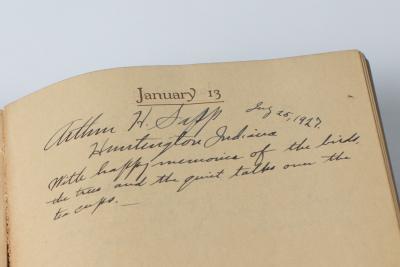 January 13
Arthur H. Sapp July 25, 1927.
Huntington Indiana
With happy memories of the birds,
the trees and the quiet talks over the
tea cups. —